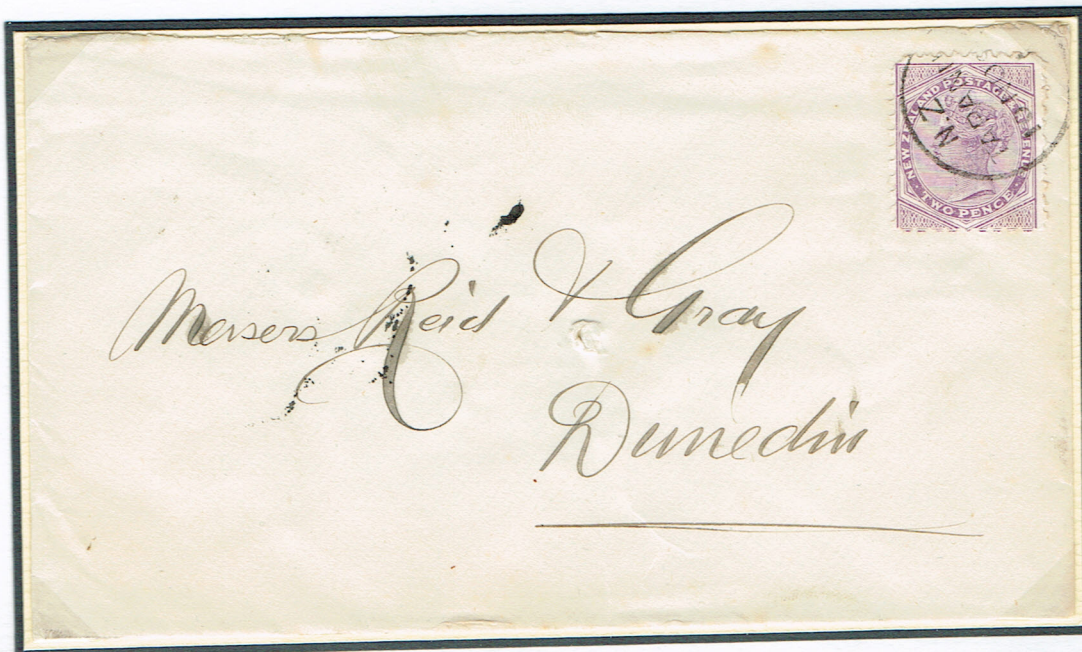 NEW ZEALAND POSTAGE
TWO PENCE
N.Z
Messrs Reid & Gray
Dunedin